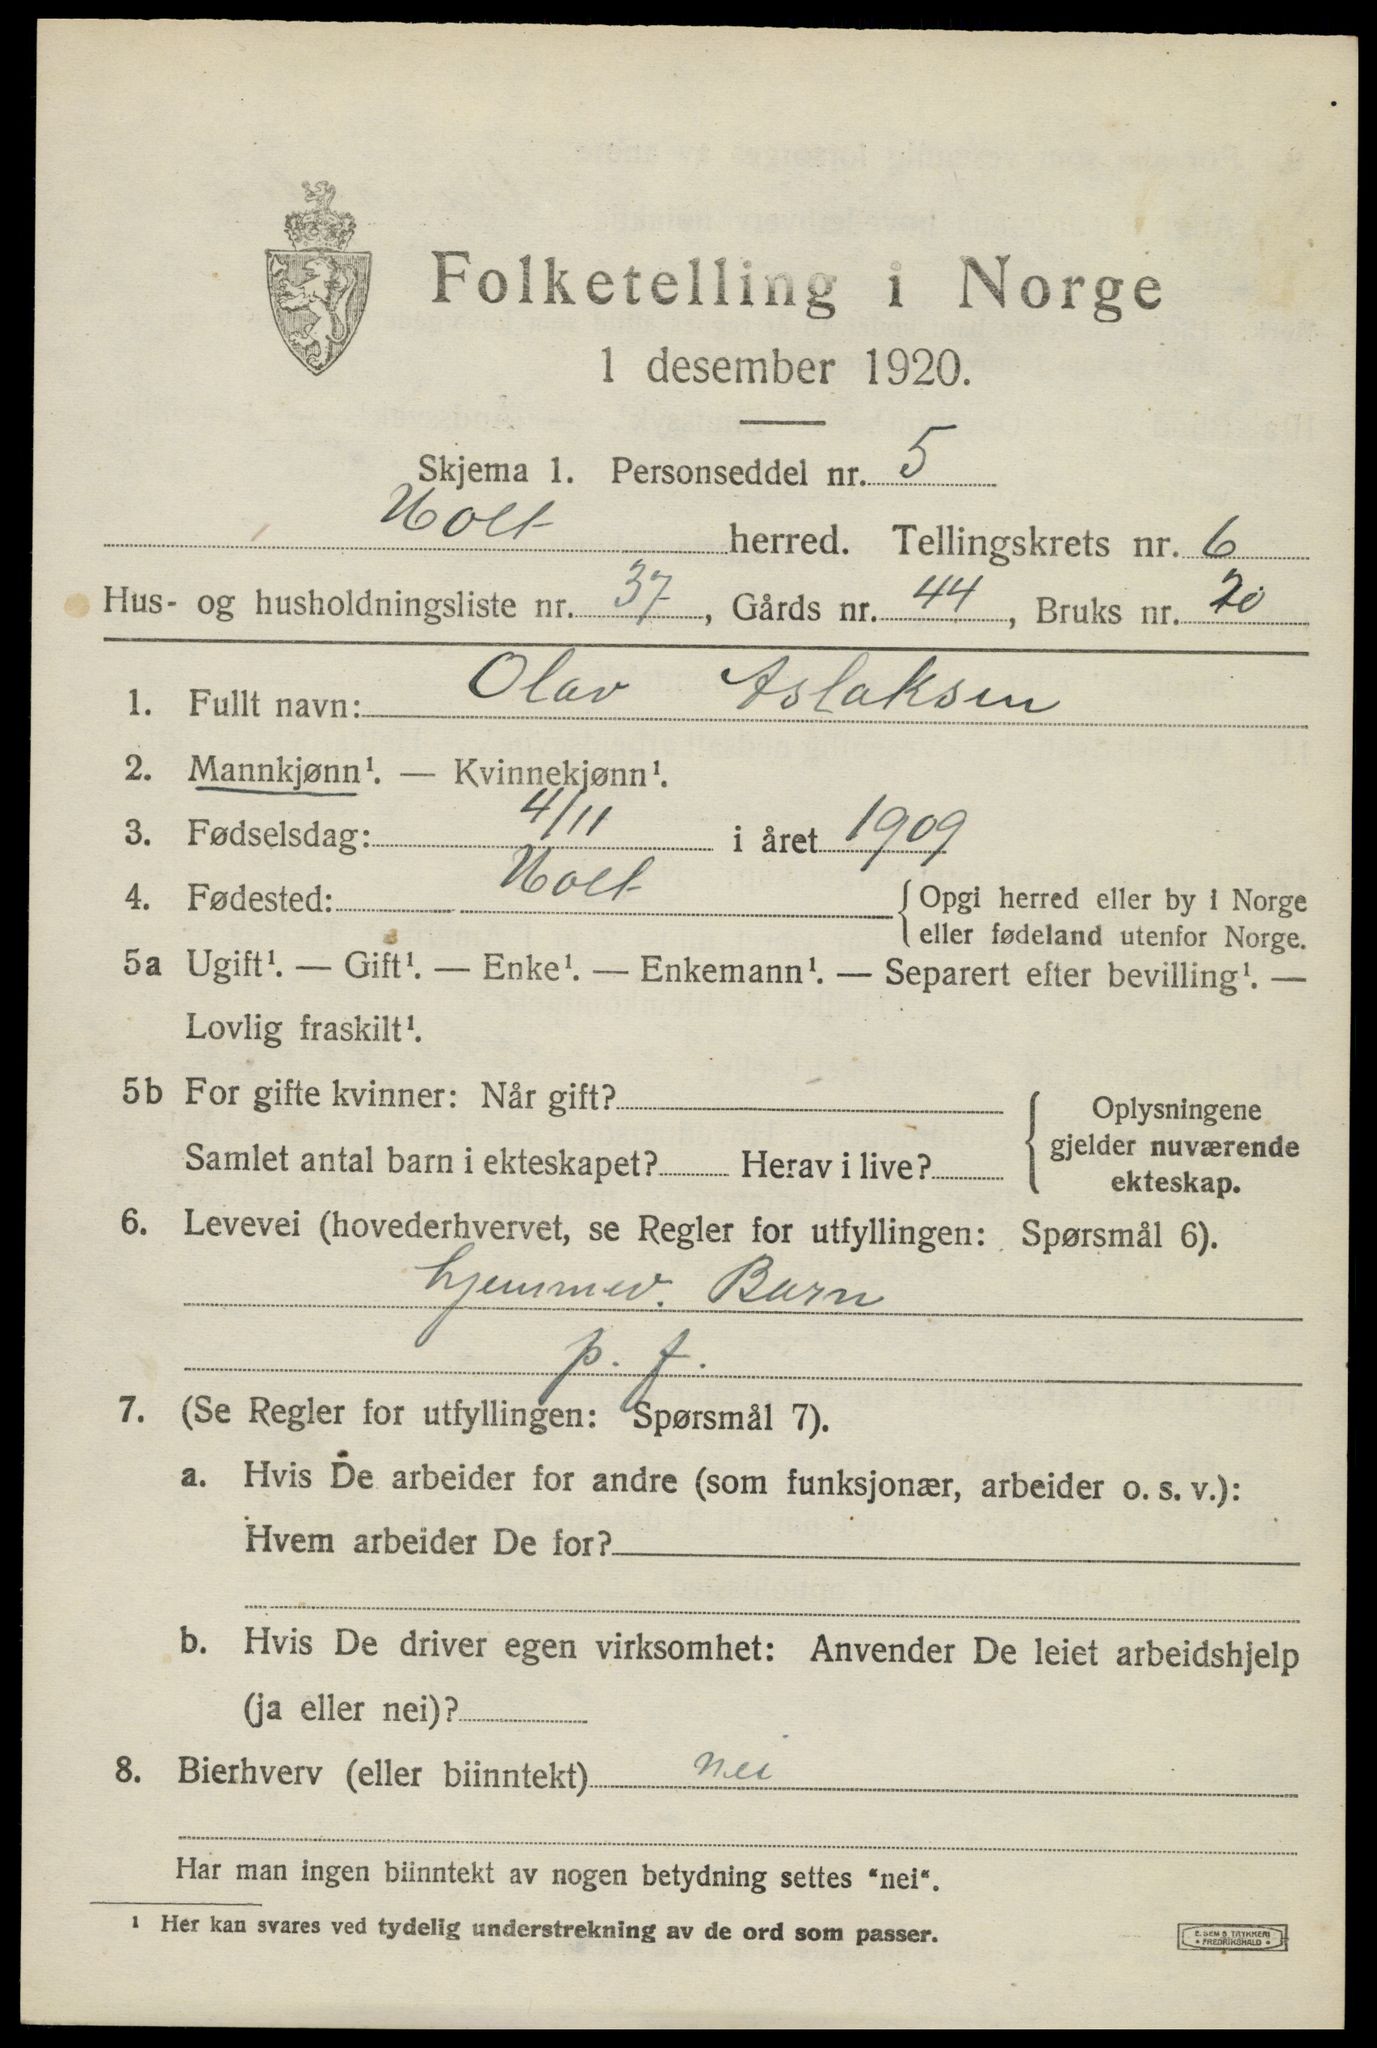 Folketelling i Norge
1 desember 1920.
Skjema 1. Personseddel nr. 5
Holt herred. Tellingskrets nr. 6
Hus- og husholdningsliste nr. 37, Gårds nr. 44, Bruks nr. 20
1. Fullt navn: Olav Aslaksen
2. Mannkjønn¹. — Kvinnekjønn¹.
3. Fødselsdag: 4/11 i året 1909
4. Fødested: Holt { Opgi herred eller by i Norge
eller fødeland utenfor Norge.
5a Ugift¹. — Gift¹. — Enke¹. — Enkemann¹. — Separert efter bevilling¹. —
Lovlig fraskilt¹.
5b For gifte kvinner: Når gift?
Samlet antal barn i ekteskapet? Herav i live?
{ Oplysningene
gjelder nuværende
ekteskap.
6. Levevei (hovederhvervet, se Regler for utfyllingen: Spørsmål 6).
hjemmev. Barn
p. f.
7. (Se Regler for utfyllingen: Spørsmål 7).
a. Hvis De arbeider for andre (som funksjonær, arbeider o. s. v.):
Hvem arbeider De for?
b. Hvis De driver egen virksomhet: Anvender De leiet arbeidshjelp
(ja eller nei)?
8. Bierhverv (eller biinntekt) nei
Har man ingen biinntekt av nogen betydning settes "nei".
¹ Her kan svares ved tydelig understrekning av de ord som passer.
E. SEM'S TRYKKERI
• FREDRIKSHALD •